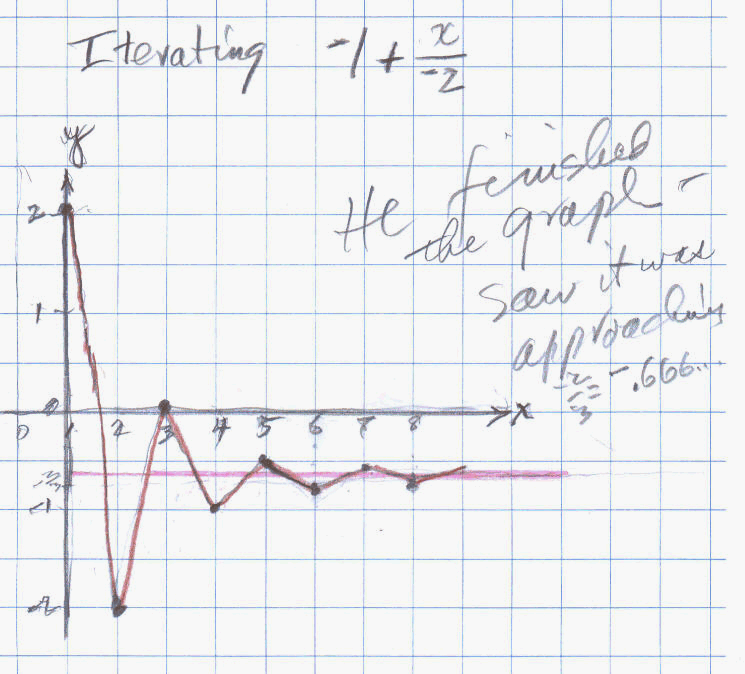 Iterating -1 + x/-2
y
He finished
the graph -
saw it was
approaching
-2/3 = -.666...
2
1
0
0 1 2 3 4 5 6 7 8 x
-2/3
-1
-2